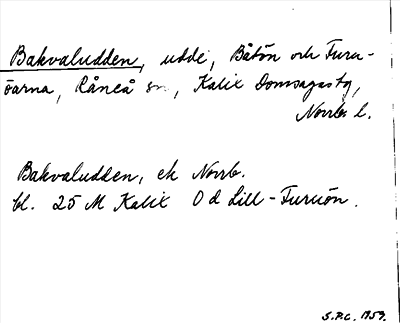 Bakvaludden, udde, Båtön och Furu-
öarna, Råneå sn, Kalix Domsagas tg,
Norrb. l.
Bakvaludden, ek Norrb.
bl. 25 M Kalix O d Lill-Furuön.
S.P.C. 1959.